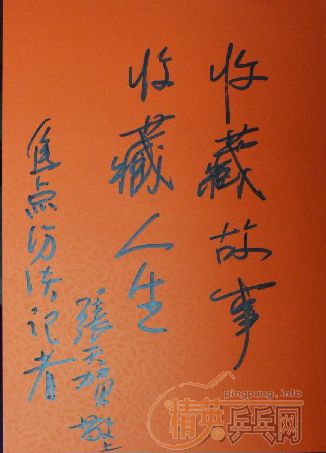 收藏故事
收藏人生
焦点访谈记者
張天賀 敬上
pingpang.info
精英乒乓网